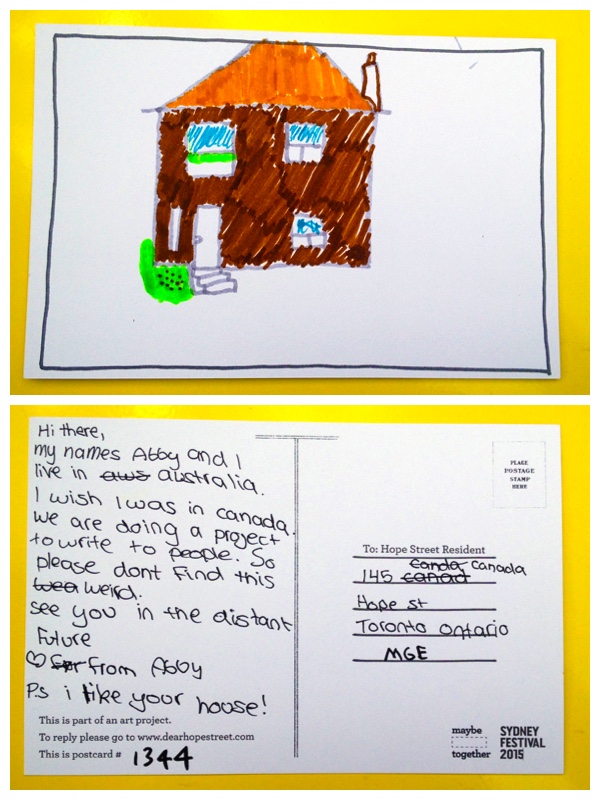 Hi there,
my names Abby and I
live in aus australia.
I wish I was in canada.
we are doing a project
to write to people. So
please dont find this
wea weird.
see you in the distant
future
♡ for from Abby
P.s i like your house!
This is part of an art project.
To reply please go to www.dearhopestreet.com
This is postcard # 1344
PLACE
POSTAGE
STAMP
HERE
To: Hope Street Resident
canda canada
145 canad
Hope st
Toronto ontario
M6E
maybe
together
SYDNEY
FESTIVAL
2015